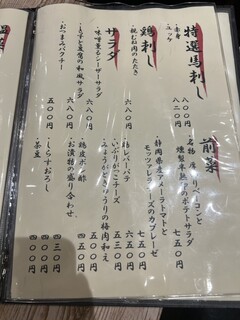 特選馬刺し
・赤身 八二〇円
・ユッケ 八八〇円
鶏刺し
・桃むね肉のたたき 六八〇円
サラダ
・味噌薫るシーザーサラダ 六八〇円
・豆腐の和風サラダ 六八〇円
・おつまみパクチー 五〇〇円
前菜
・名物 厚切りベーコンと
燻製半熟卵のポテトサラダ 七五〇円
・静岡県産アメーラトマトと
モッツァレラチーズのカプレーゼ 七五〇円
・鶏レバーパテ 六五〇円
・いぶりがっこチーズ 五五〇円
・みょうがときゅうりの梅肉和え 五〇〇円
・鶏皮ポン酢 四三〇円
・お漬物の盛り合わせ 五〇〇円
・しらすおろし 四〇〇円
・茶豆 四〇〇円